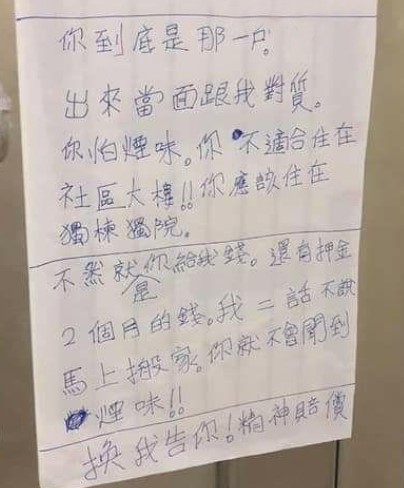 你到底是那一户
出來當面跟我對質。
你怕煙味。你不適合住在
社區大樓!!你應該住在
獨棟獨院。
不然就是你給我錢。還有押金
2個月的錢。我二話不說
馬上搬家。你就不會聞到
煙味!!
換我告你!精神賠償